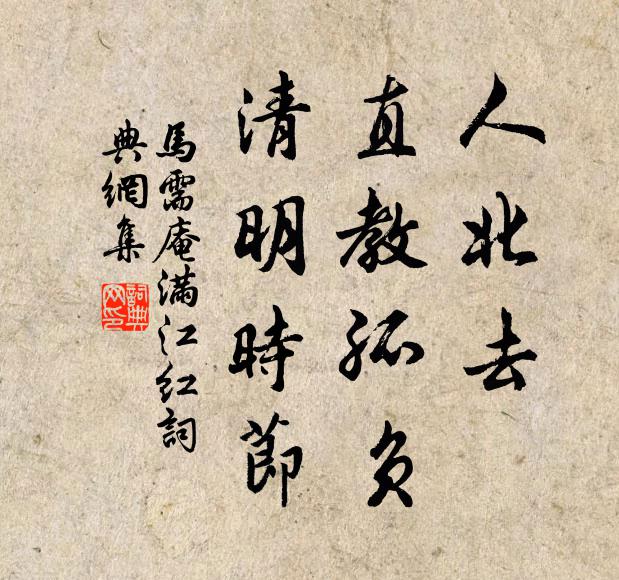 人北去
直教孤負
清明時節
馬需庵滿江紅詞
典網集
詞典網印